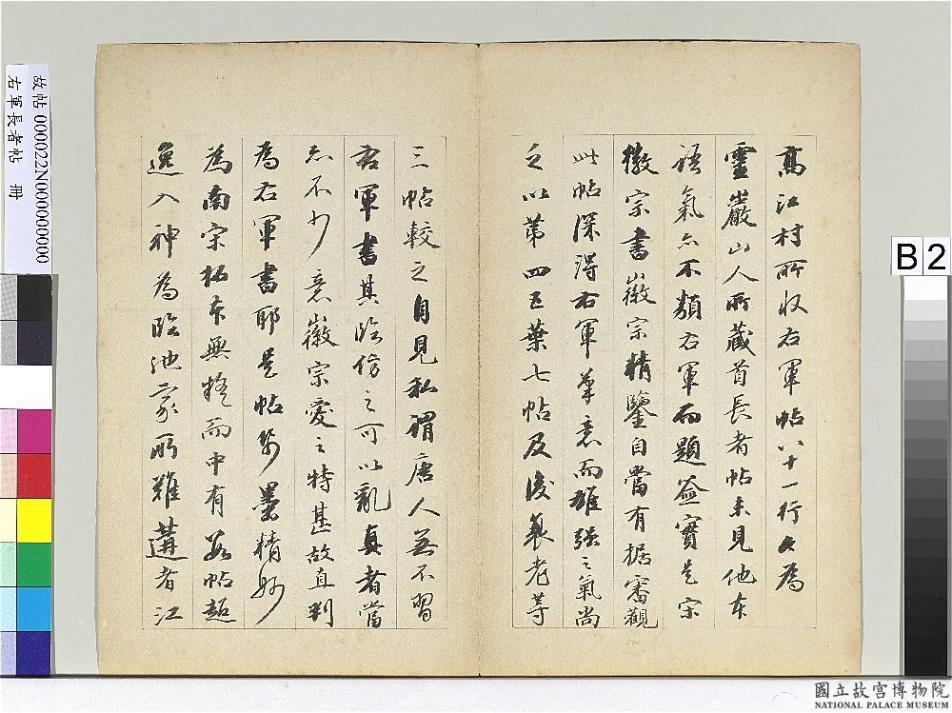 高江村所收右軍帖八十一行久為
靈巖山人所藏首長者帖未見他本
語氣亦不類右軍而題簽實是宗
徽宗書徽宗精鑒自當有据審觀
此帖深得右軍筆意而雄强之氣尚
之以第四五葉七帖及後裝老等
三帖較之自見私謂唐人無不習
右軍書其臨仿之可以亂真者當
亦不少意徽宗愛之特甚故直判
為右軍書耶是帖紙墨精妙
為南宋拓本無疑而中有數帖超
逸入神為臨池家所難遘者江
故帖 000022N000000000
右軍長者帖 冊
B2
國立故宮博物院
NATIONAL PALACE MUSEUM